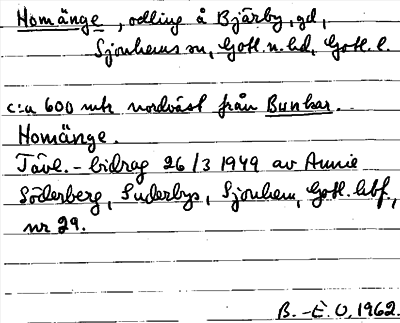 Homänge, odling å Bjärby, gd,
Sjonhems sn, Gotl. n. hd, Gotl. l.
c:a 600 mtr nordväst från Bunkar.
Homänge.
Tävl.-bidrag 26/3 1949 av Annie
Söderberg, Suderbys, Sjonhem, Gotl. hbf.,
nr 29.
B.-E. O, 1962.